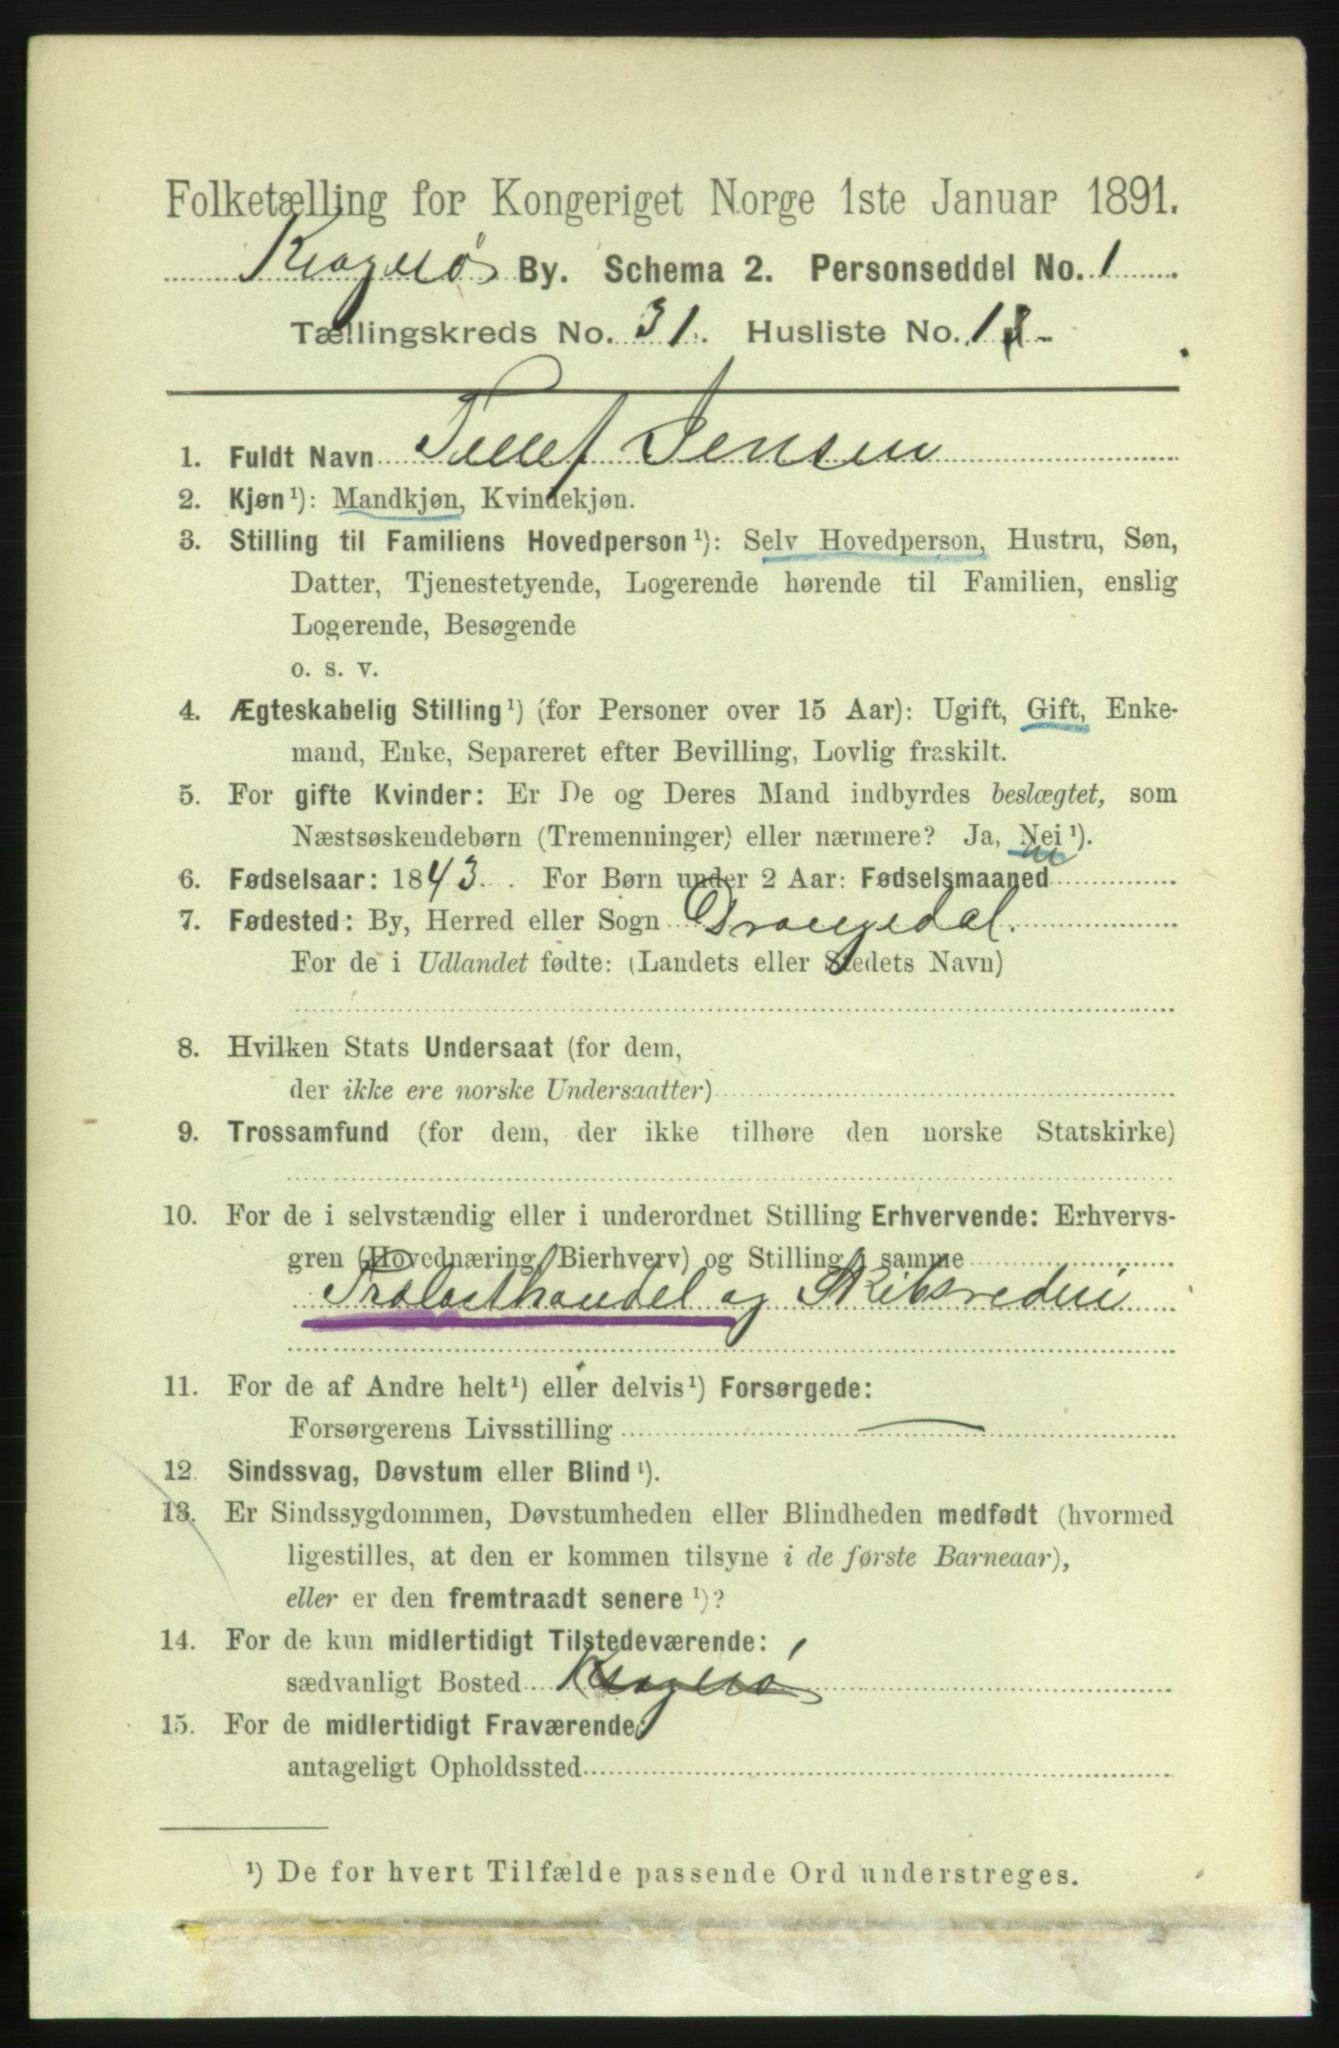 Folketælling for Kongeriget Norge 1ste Januar 1891.
Kragerø By. Schema 2. Personseddel No. 1
Tællingskreds No. 31. Husliste No. 1
1. Fuldt Navn Tellef Jensen
2. Kjøn ¹): Mandkjøn, Kvindekjøn.
3. Stilling til Familiens Hovedperson ¹): Selv Hovedperson, Hustru, Søn,
Datter, Tjenestetyende, Logerende hørende til Familien, enslig
Logerende, Besøgende
o. s. v.
4. Ægteskabelig Stilling ¹) (for Personer over 15 Aar): Ugift, Gift, Enke-
mand, Enke, Separeret efter Bevilling, Lovlig fraskilt.
5. For gifte Kvinder: Er De og Deres Mand indbyrdes beslægtet, som
Næstsøskendebørn (Tremenninger) eller nærmere? Ja, Nei ¹).
6. Fødselsaar: 1843. For Børn under 2 Aar: Fødselsmaaned
7. Fødested: By, Herred eller Sogn Drangedal.
For de i Udlandet fødte: (Landets eller Stedets Navn)
8. Hvilken Stats Undersaat (for dem,
der ikke ere norske Undersaatter)
9. Trossamfund (for dem, der ikke tilhøre den norske Statskirke)
10. For de i selvstændig eller i underordnet Stilling Erhvervende: Erhvervs-
gren (Hovednæring, Bierhverv) og Stilling i samme
Trælasthandel og Skibsrederi
11. For de af Andre helt ¹) eller delvis ¹) Forsørgede:
Forsørgerens Livsstilling —
12. Sindssvag, Døvstum eller Blind ¹).
13. Er Sindssygdommen, Døvstumheden eller Blindheden medfødt (hvormed
ligestilles, at den er kommen tilsyne i de første Barneaar),
eller er den fremtraadt senere ¹)?
14. For de kun midlertidigt Tilstedeværende:
sædvanligt Bosted Kragerø
15. For de midlertidigt Fraværende:
antageligt Opholdssted
¹) De for hvert Tilfælde passende Ord understreges.